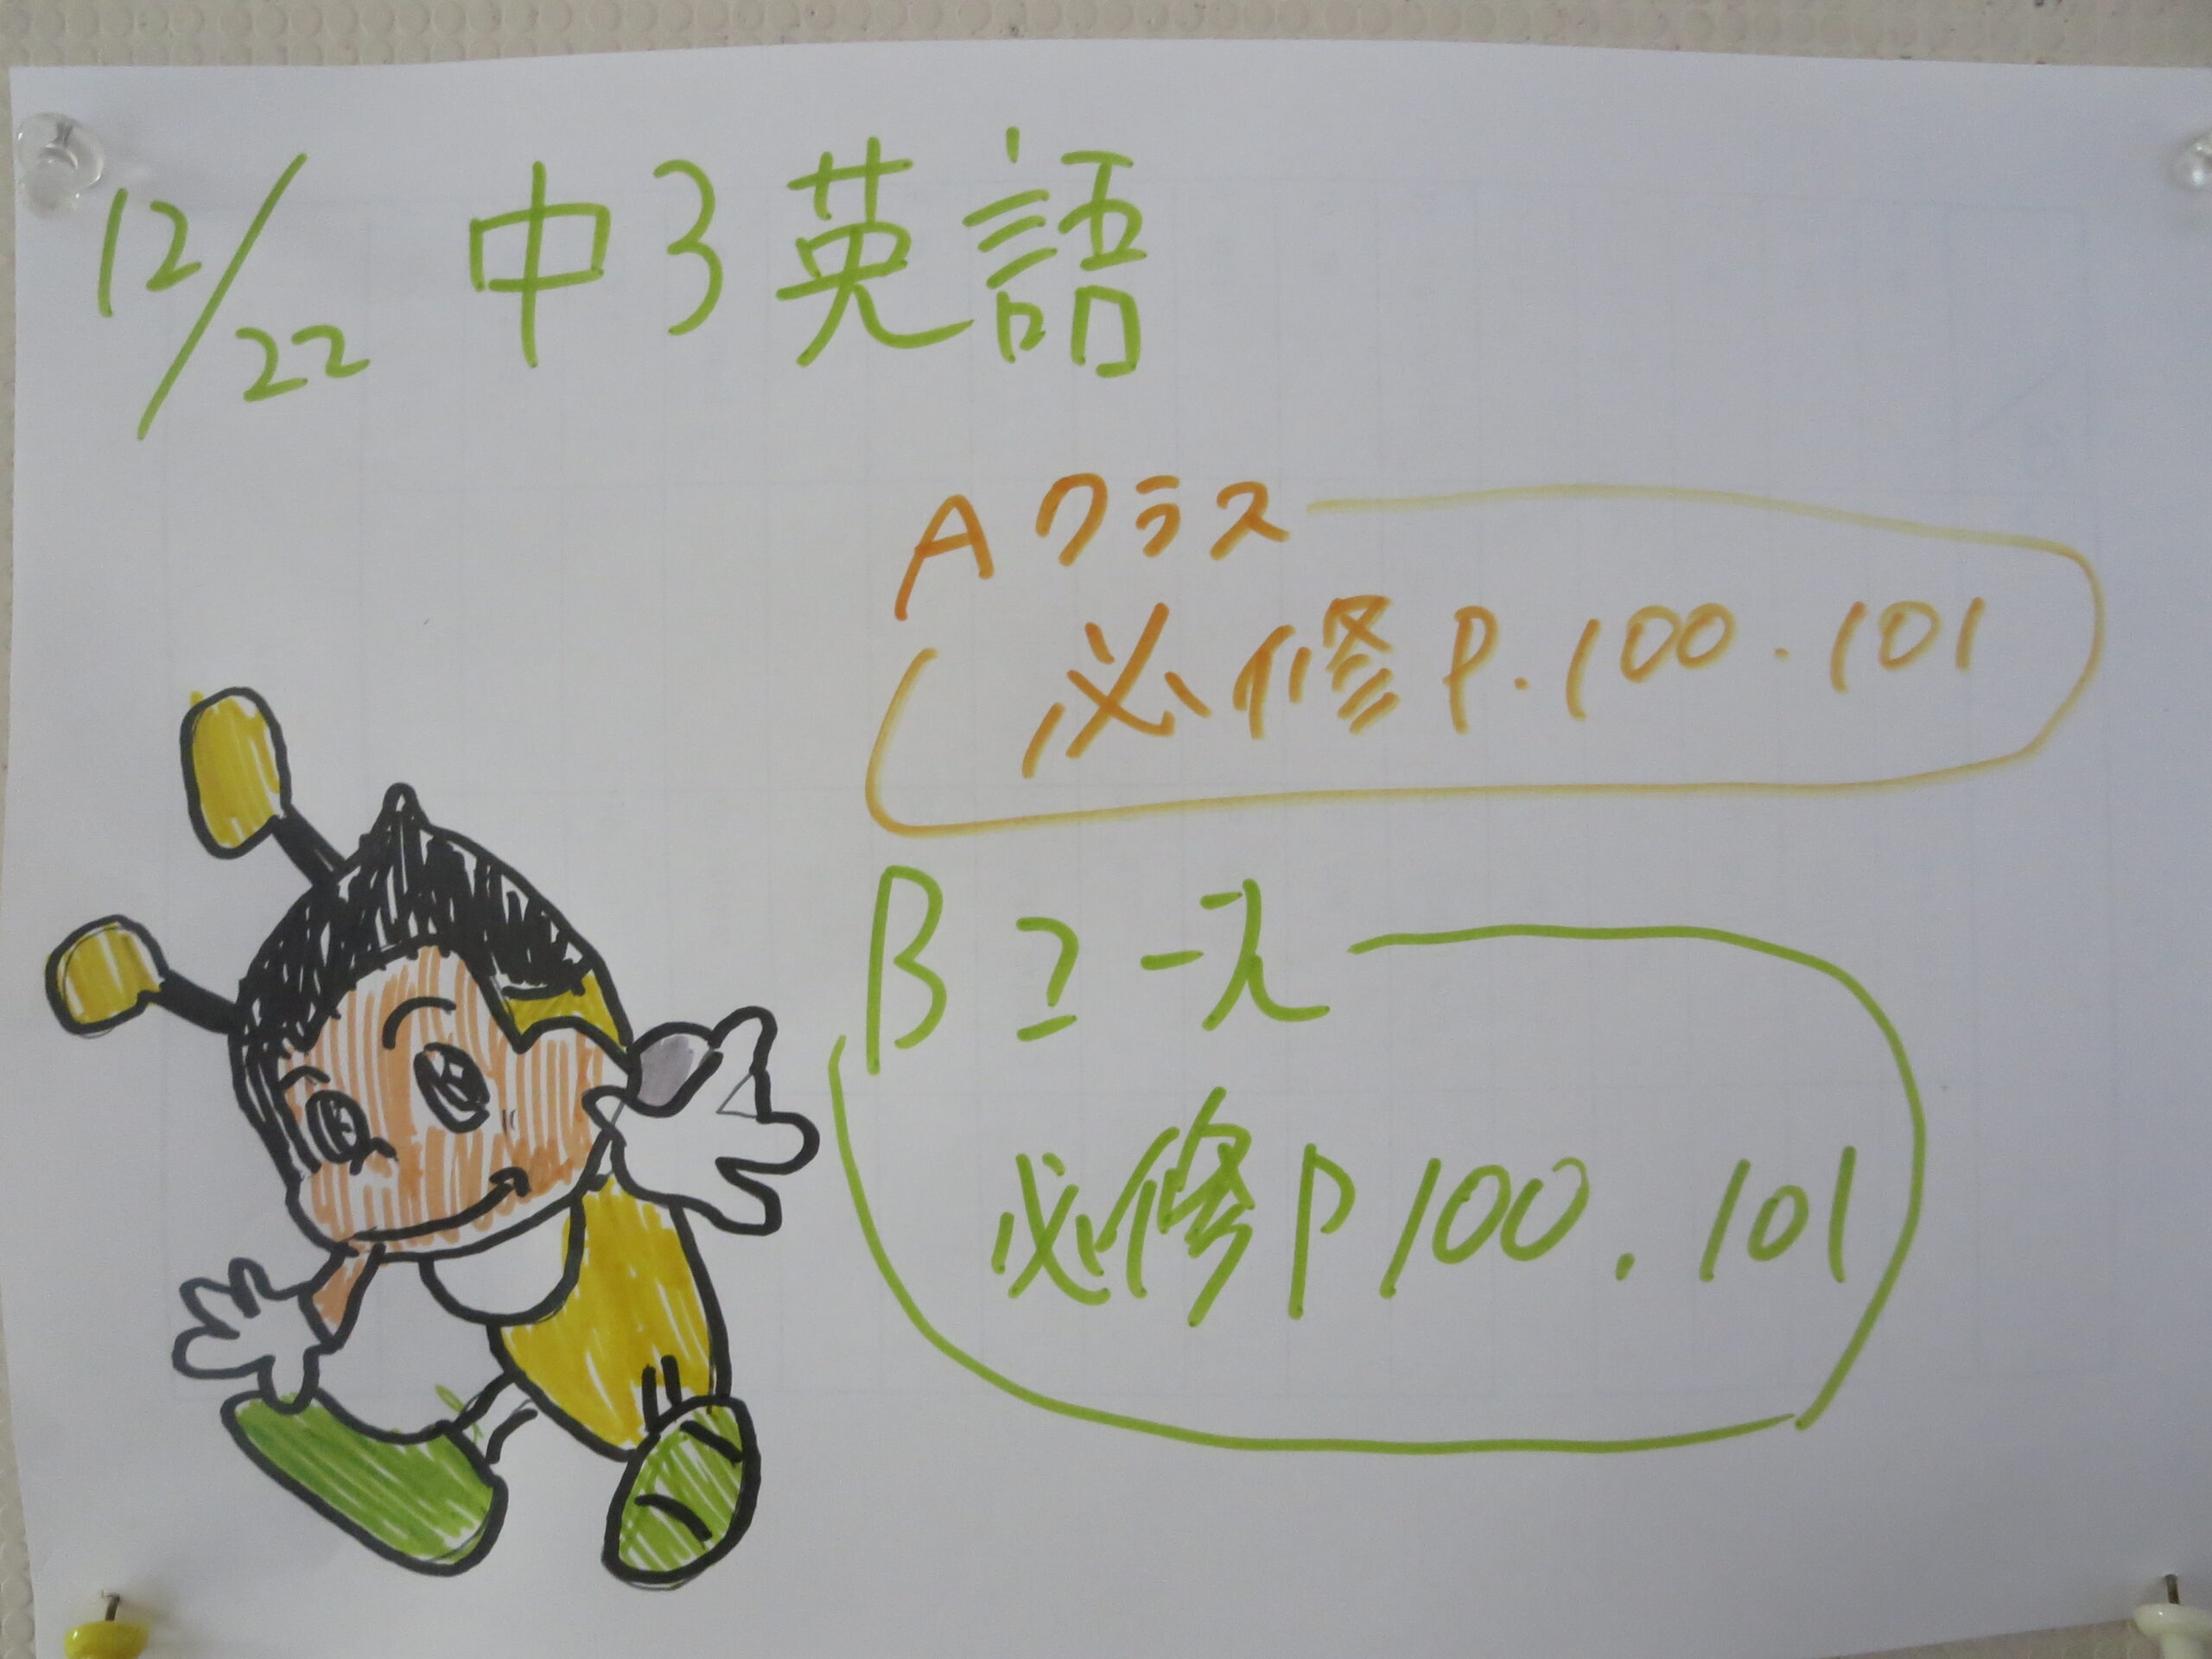 12/22 中3英語
Aクラス
必修P.100.101
Bコース
必修P100.101